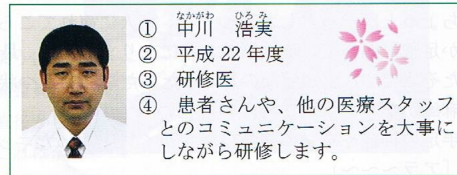 なかがわ ひろみ
① 中川 浩実
② 平成 22 年度
③ 研修医
④ 患者さんや、他の医療スタッフ
とのコミュニケーションを大事に
しながら研修します。